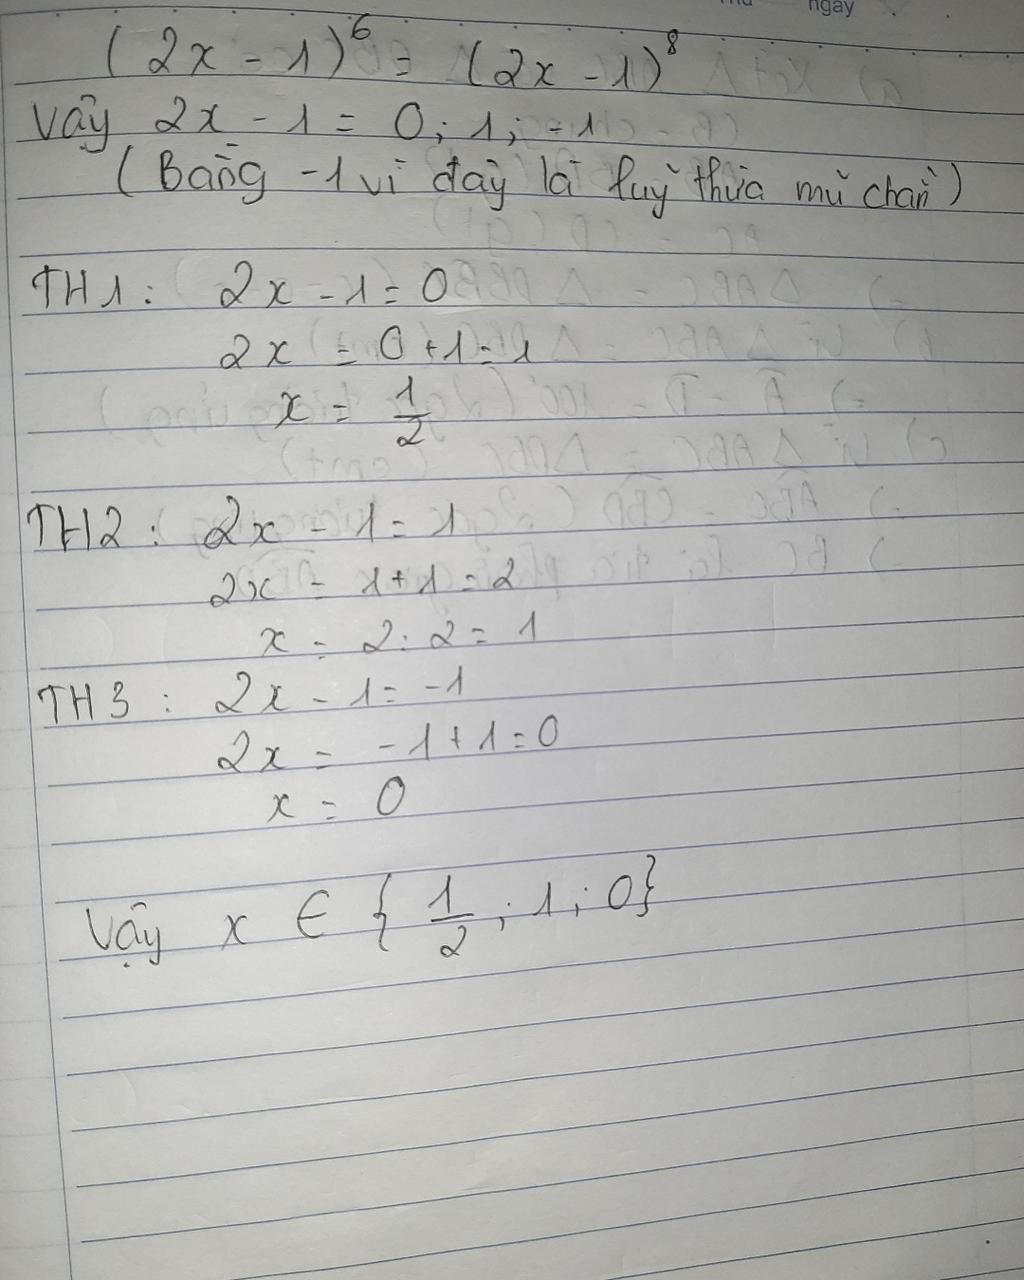 ngày
(2x - 1)⁶ = (2x - 1)⁸
Vậy 2x - 1 = 0; 1; -1
(Bằng -1 vì đây là luỹ thừa mũ chẵn)
TH1: 2x - 1 = 0
2x = 0 + 1 = 1
x = 1/2
TH2: 2x - 1 = 1
2x = 1 + 1 = 2
x = 2 : 2 = 1
TH3: 2x - 1 = -1
2x = -1 + 1 = 0
x = 0
Vậy x ∈ {1/2; 1; 0}